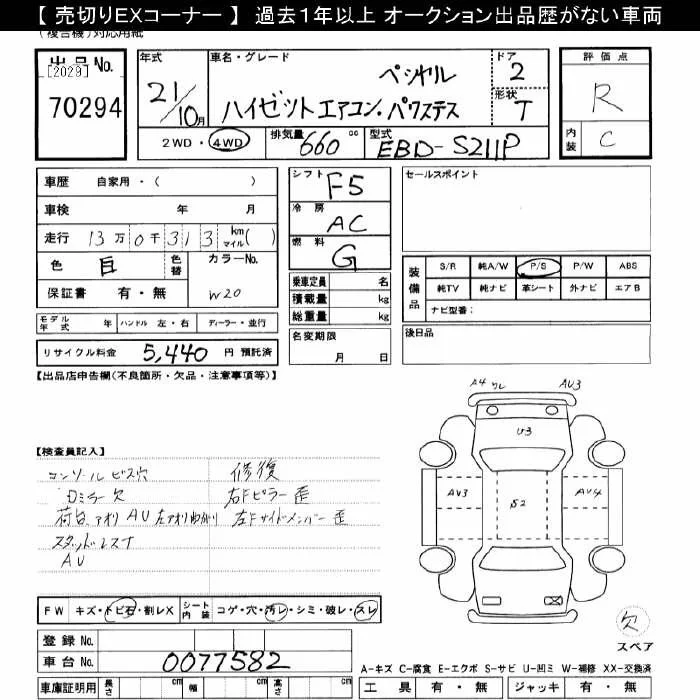 【 売切りEXコーナー 】 過去1年以上 オークション出品歴がない車両
(複合機) 対応用紙
出品No.
[2029]
70294
年式
21/10月
車名・グレード
ペシャル
ハイゼット エアコン・パワステス
ドア
2
形状
T
2WD・4WD
排気量 660 cc
型式 EBD-S211P
評価点
R
内装 C
車歴 自家用・( )
車検 年 月
走行 13万0千313 km マイル( )
色 白
色替
カラーNo.
W20
保証書 有・無
モデル年式 年 ハンドル 左・右 ディーラー・並行
リサイクル料金 5,440 円 預託済
シフト F5
冷房 AC
燃料 G
乗車定員 名
積載量 kg
総重量 kg
名変期限
月 日
セールスポイント
装備品
S/R 純A/W P/S P/W ABS
純TV 純ナビ 革シート 外ナビ エアB
ナビ型番:
後日品
【出品店申告欄(不良箇所・欠品・注意事項等)】
【検査員記入】
コンソール ビス穴
ロミラー 欠
荷台、アオリ AU 左アオリ曲がり
スタッドレス T
AU
修復
右Fピラー 歪
左Fサイドメンバー 歪
A4 ワレ
AU3
U3
AU3
S2
AU4
欠
スペア
FW キズ・トビ石・割レX
シート内装 コゲ・穴・汚レ・シミ・破レ・スレ
登録No.
車台No. 0077582
車庫証明用 長さ cm 幅 cm 高さ cm
A-キズ C-腐食 E-エクボ S-サビ U-凹ミ W-補修 XX-交換済
工具 有・無 ジャッキ 有・無